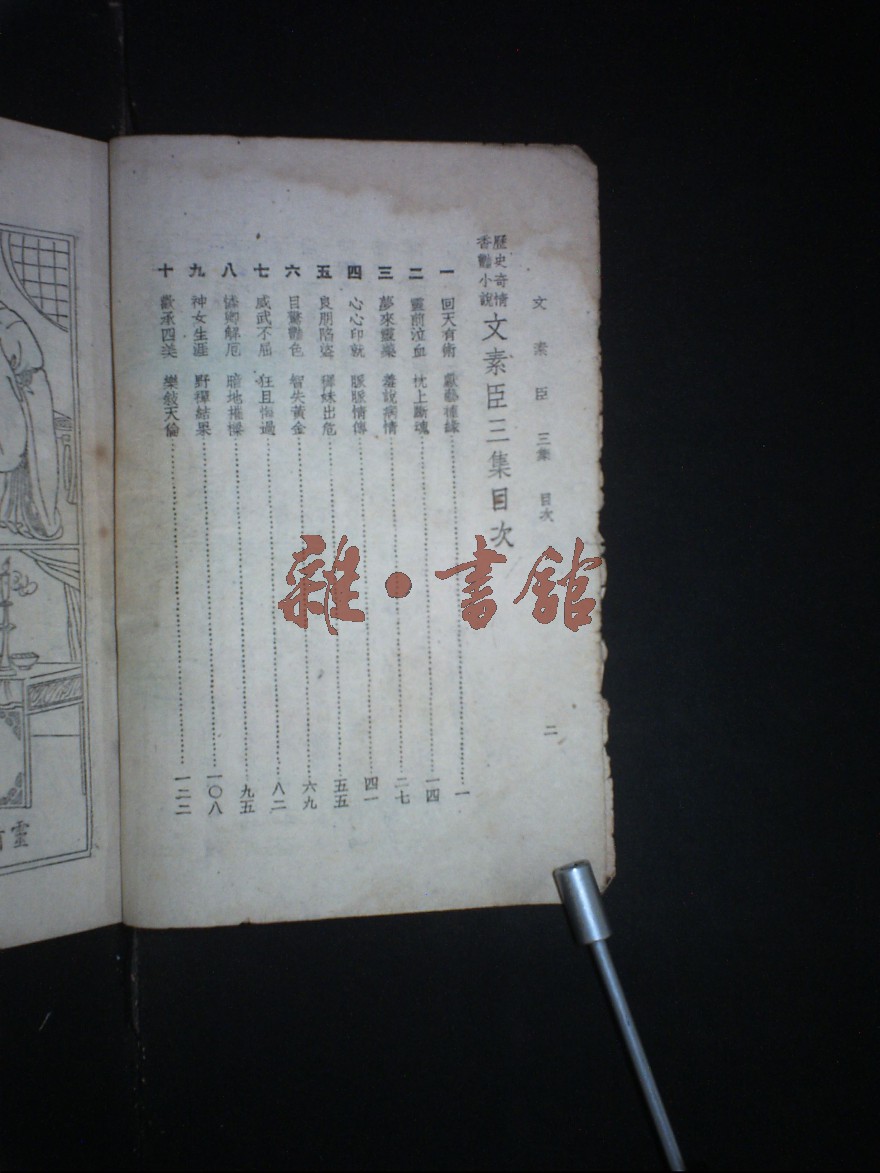 文素臣 三集 目次 二
歷史奇情
香艷小說
文素臣三集目次
一 回天有術 獻藝種緣 一
二 靈前泣血 枕上斷魂 一四
三 夢來靈藥 羞說病情 二七
四 心心印就 脈脈情傳 四一
五 良朋陷盜 穉妹出危 五五
六 目驚艷色 智失黃金 六九
七 威武不屈 狂且悔過 八二
八 解厄 暗地摧 九五
九 神女生涯 野禪結果 一〇八
十 歡承四美 樂敍天倫 一二二
雜•書館
靈前